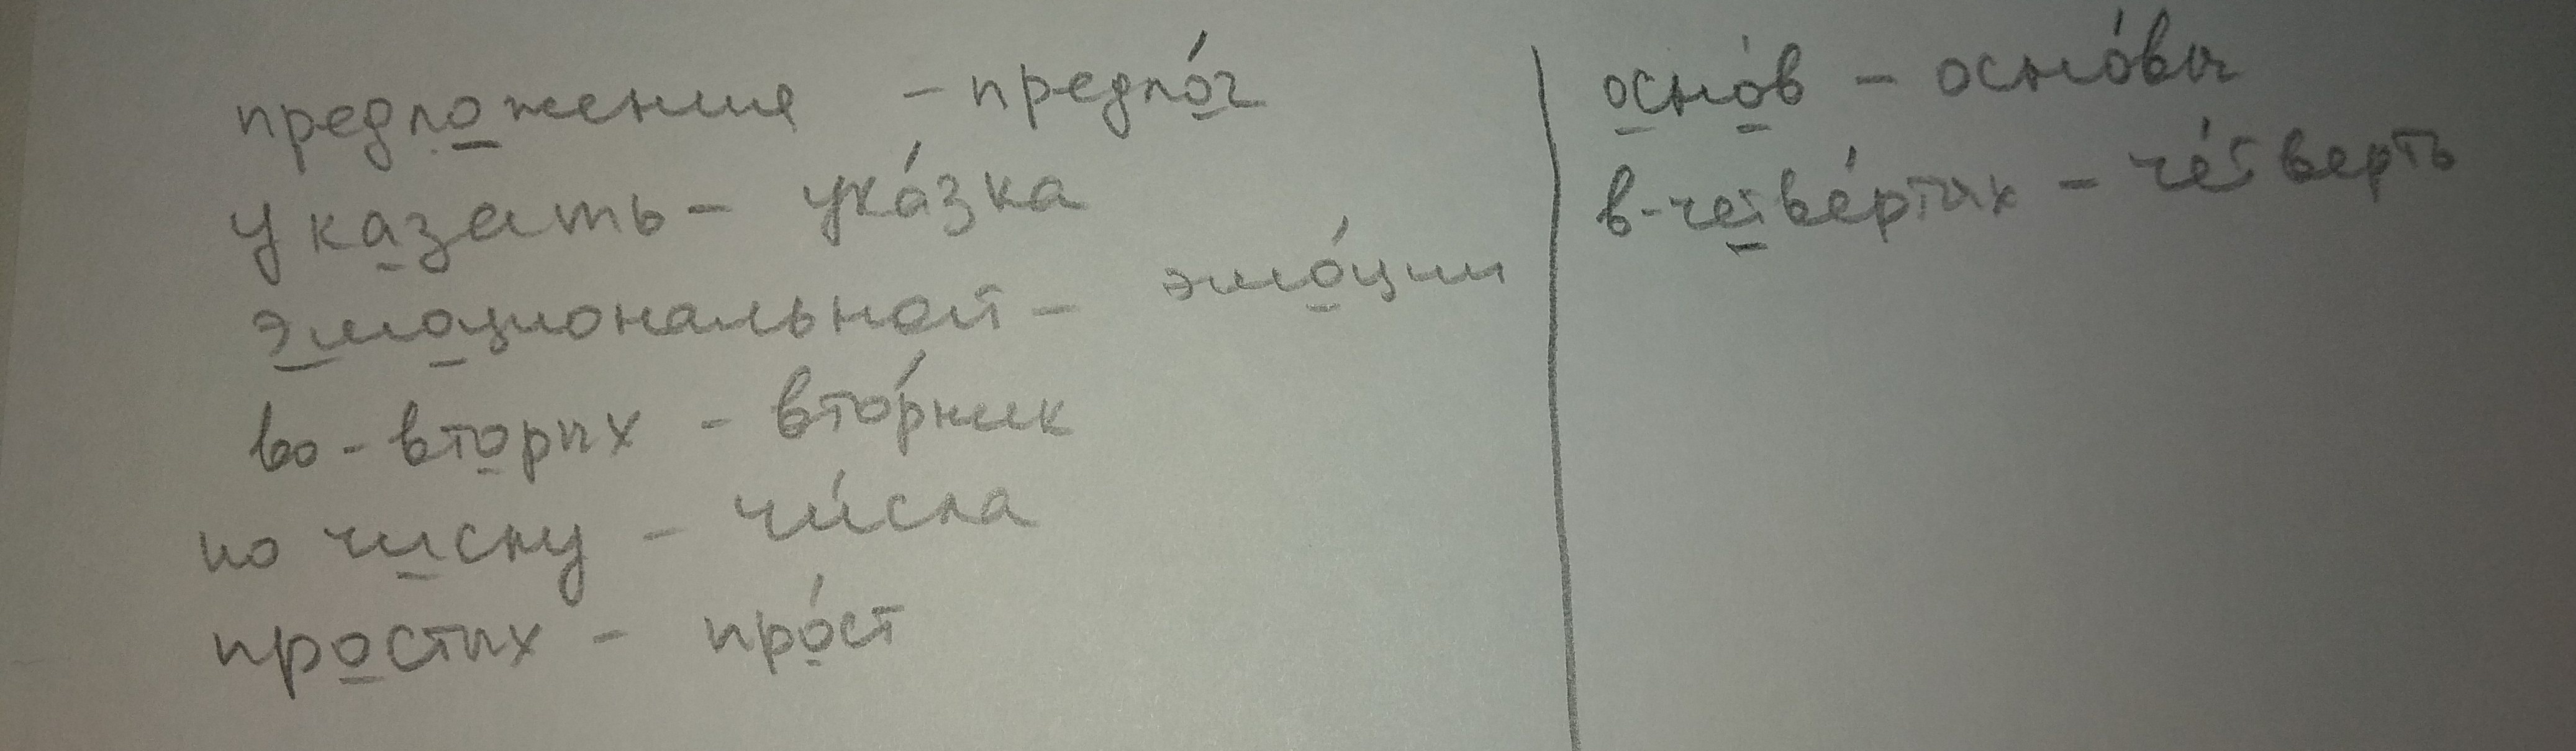 предложения – предло́г
указать – ука́зка
эмоциональной – эмо́ции
во-вторых – вто́рник
по числу – чи́сла
простых – про́ст
осно́в – осно́вы
в-четве́ртых – че́тверть